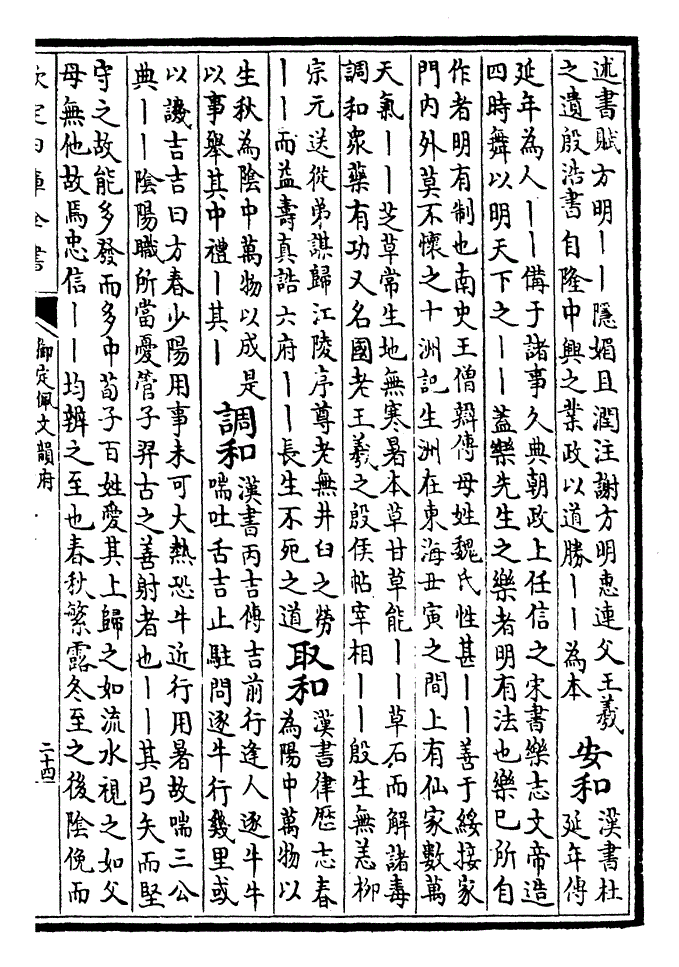 述書賦方明——隱媚且潤注謝方明惠連父王羲
之遺殷浩書自隆中興之業政以道勝——為本
安和
漢書杜
延年傳
延年為人——備于諸事久典朝政上任信之宋書樂志文帝造
四時舞以明天下之——蓋樂先生之樂者明有法也樂已所自
作者明有制也南史王僧辯傳母姓魏氏性甚——善于綏接家
門內外莫不懷之十洲記生洲在東海丑寅之間上有仙家數萬
天氣——芝草常生地無寒暑本草甘草能——草石而解諸毒
調和眾藥有功又名國老王羲之殷侯帖宰相——殷生無恙柳
宗元送從弟謀歸江陵序尊老無井臼之勞
——而益壽真誥六府——長生不死之道
取和
漢書律歷志春
為陽中萬物以
生秋為陰中萬物以成是
以事舉其中禮—其—
調和
漢書丙吉傳吉前行逢人逐牛牛
喘吐舌吉止駐問逐牛行幾里或
以譏吉吉曰方春少陽用事未可大熱恐牛近行用暑故喘三公
典——陰陽職所當憂管子羿古之善射者也——其弓矢而堅
守之故能多發而多中荀子百姓愛其上歸之如流水視之如父
母無他故焉忠信——均辨之至也春秋繁露冬至之後陰俛而
欽定四庫全書
御定佩文韻府
二十四